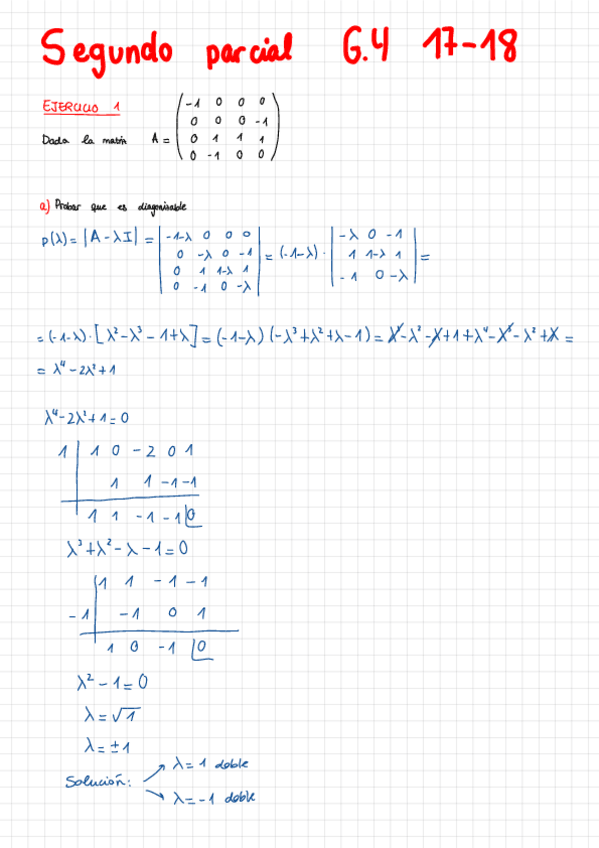 Segundo parcial G.4 17-18
EJERCICIO 1
Dada la matriz A = 
-1 0 0 0
0 0 0 -1
0 1 1 1
0 -1 0 0
a) Probar que es diagonisable
p(λ) = |A - λI| = | -1-λ 0 0 0 | = (-1-λ) · | -λ 0 -1 | =
0 -λ 0 -1 | 1 1-λ 1
0 1 1-λ 1 | -1 0 -λ
0 -1 0 -λ
= (-1-λ) · [λ² - λ³ - 1 + λ] = (-1-λ) (-λ³ + λ² + λ - 1) = λ³ - λ² - λ + 1 + λ⁴ - λ³ - λ² + λ =
= λ⁴ - 2λ² + 1
λ⁴ - 2λ² + 1 = 0
1 | 1 0 -2 0 1
1 1 -1 -1
1 1 -1 -1 | 0
λ³ + λ² - λ - 1 = 0
1 1 -1 -1
-1 | -1 0 1
1 0 -1 | 0
λ² - 1 = 0
λ = √1
λ = ±1
Solución: λ = 1 doble
λ = -1 doble